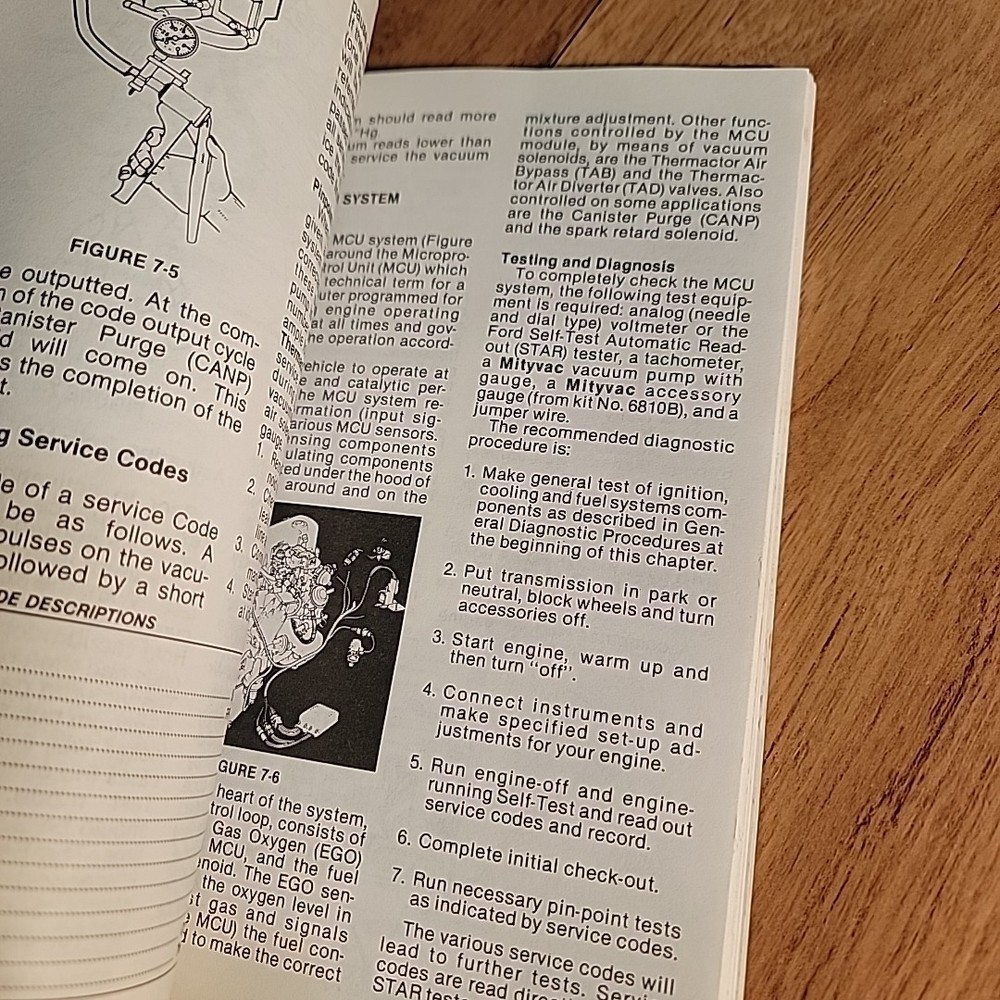 FIGURE 7-5
e outputted. At the com-
n of the code output cycle
anister Purge (CANP)
d will come on. This
s the completion of the
t.
g Service Codes
le of a service Code
be as follows. A
pulses on the vacu-
ollowed by a short
DE DESCRIPTIONS
1.
2.
3.
4.
n should read more
"Hg.
um reads lower than
service the vacuum
SYSTEM
MCU system (Figure
around the Micropro-
trol Unit (MCU) which
technical term for a
uter programmed for
engine operating
at all times and gov-
he operation accord-
vehicle to operate at
e and catalytic per-
he MCU system re-
rmation (input sig-
various MCU sensors.
nsing components
ulating components
ed under the hood of
around and on the
GURE 7-6
heart of the system,
trol loop, consists of
Gas Oxygen (EGO)
MCU, and the fuel
noid. The EGO sen-
the oxygen level in
st gas and signals
MCU) the fuel con-
d to make the correct
mixture adjustment. Other func-
tions controlled by the MCU
module, by means of vacuum
solenoids, are the Thermactor Air
Bypass (TAB) and the Thermac-
tor Air Diverter (TAD) valves. Also
controlled on some applications
are the Canister Purge (CANP)
and the spark retard solenoid.
Testing and Diagnosis
To completely check the MCU
system, the following test equip-
ment is required: analog (needle
and dial type) voltmeter or the
Ford Self-Test Automatic Read-
out (STAR) tester, a tachometer,
a Mityvac vacuum pump with
gauge, a Mityvac accessory
gauge (from kit No. 6810B), and a
jumper wire.
The recommended diagnostic
procedure is:
1. Make general test of ignition,
cooling and fuel systems com-
ponents as described in Gen-
eral Diagnostic Procedures at
the beginning of this chapter.
2. Put transmission in park or
neutral, block wheels and turn
accessories off.
3. Start engine, warm up and
then turn "off".
4. Connect instruments and
make specified set-up ad-
justments for your engine.
5. Run engine-off and engine-
running Self-Test and read out
service codes and record.
6. Complete initial check-out.
7. Run necessary pin-point tests
as indicated by service codes.
The various service codes will
lead to further tests. Servi
codes are read direc
STAR test